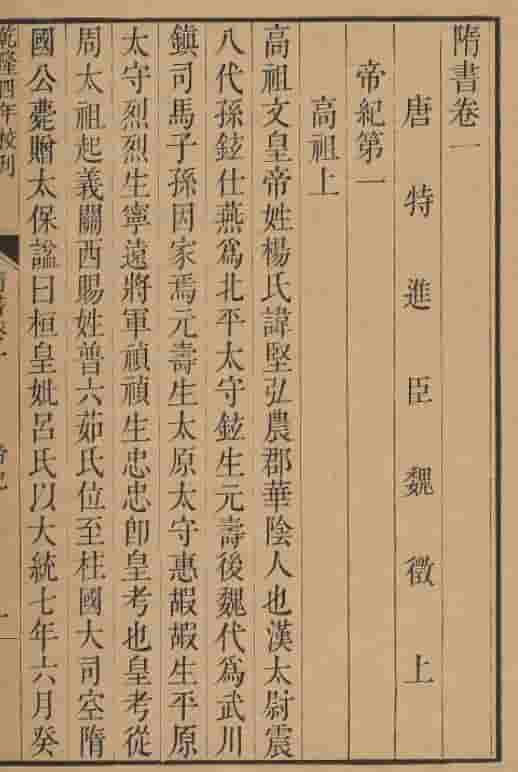 隋書卷一
唐特進臣魏徵上
帝紀第一
高祖上
高祖文皇帝姓楊氏諱堅弘農郡華陰人也漢太尉震
八代孫鉉仕燕為北平太守鉉生元壽後魏代為武川
鎮司馬子孫因家焉元壽生太原太守惠嘏嘏生平原
太守烈烈生寧遠將軍禎禎生忠忠卽皇考也皇考從
周太祖起義關西賜姓普六茹氏位至柱國大司空隋
國公薨贈太保諡曰桓皇妣呂氏以大統七年六月癸
乾隆四年校刊